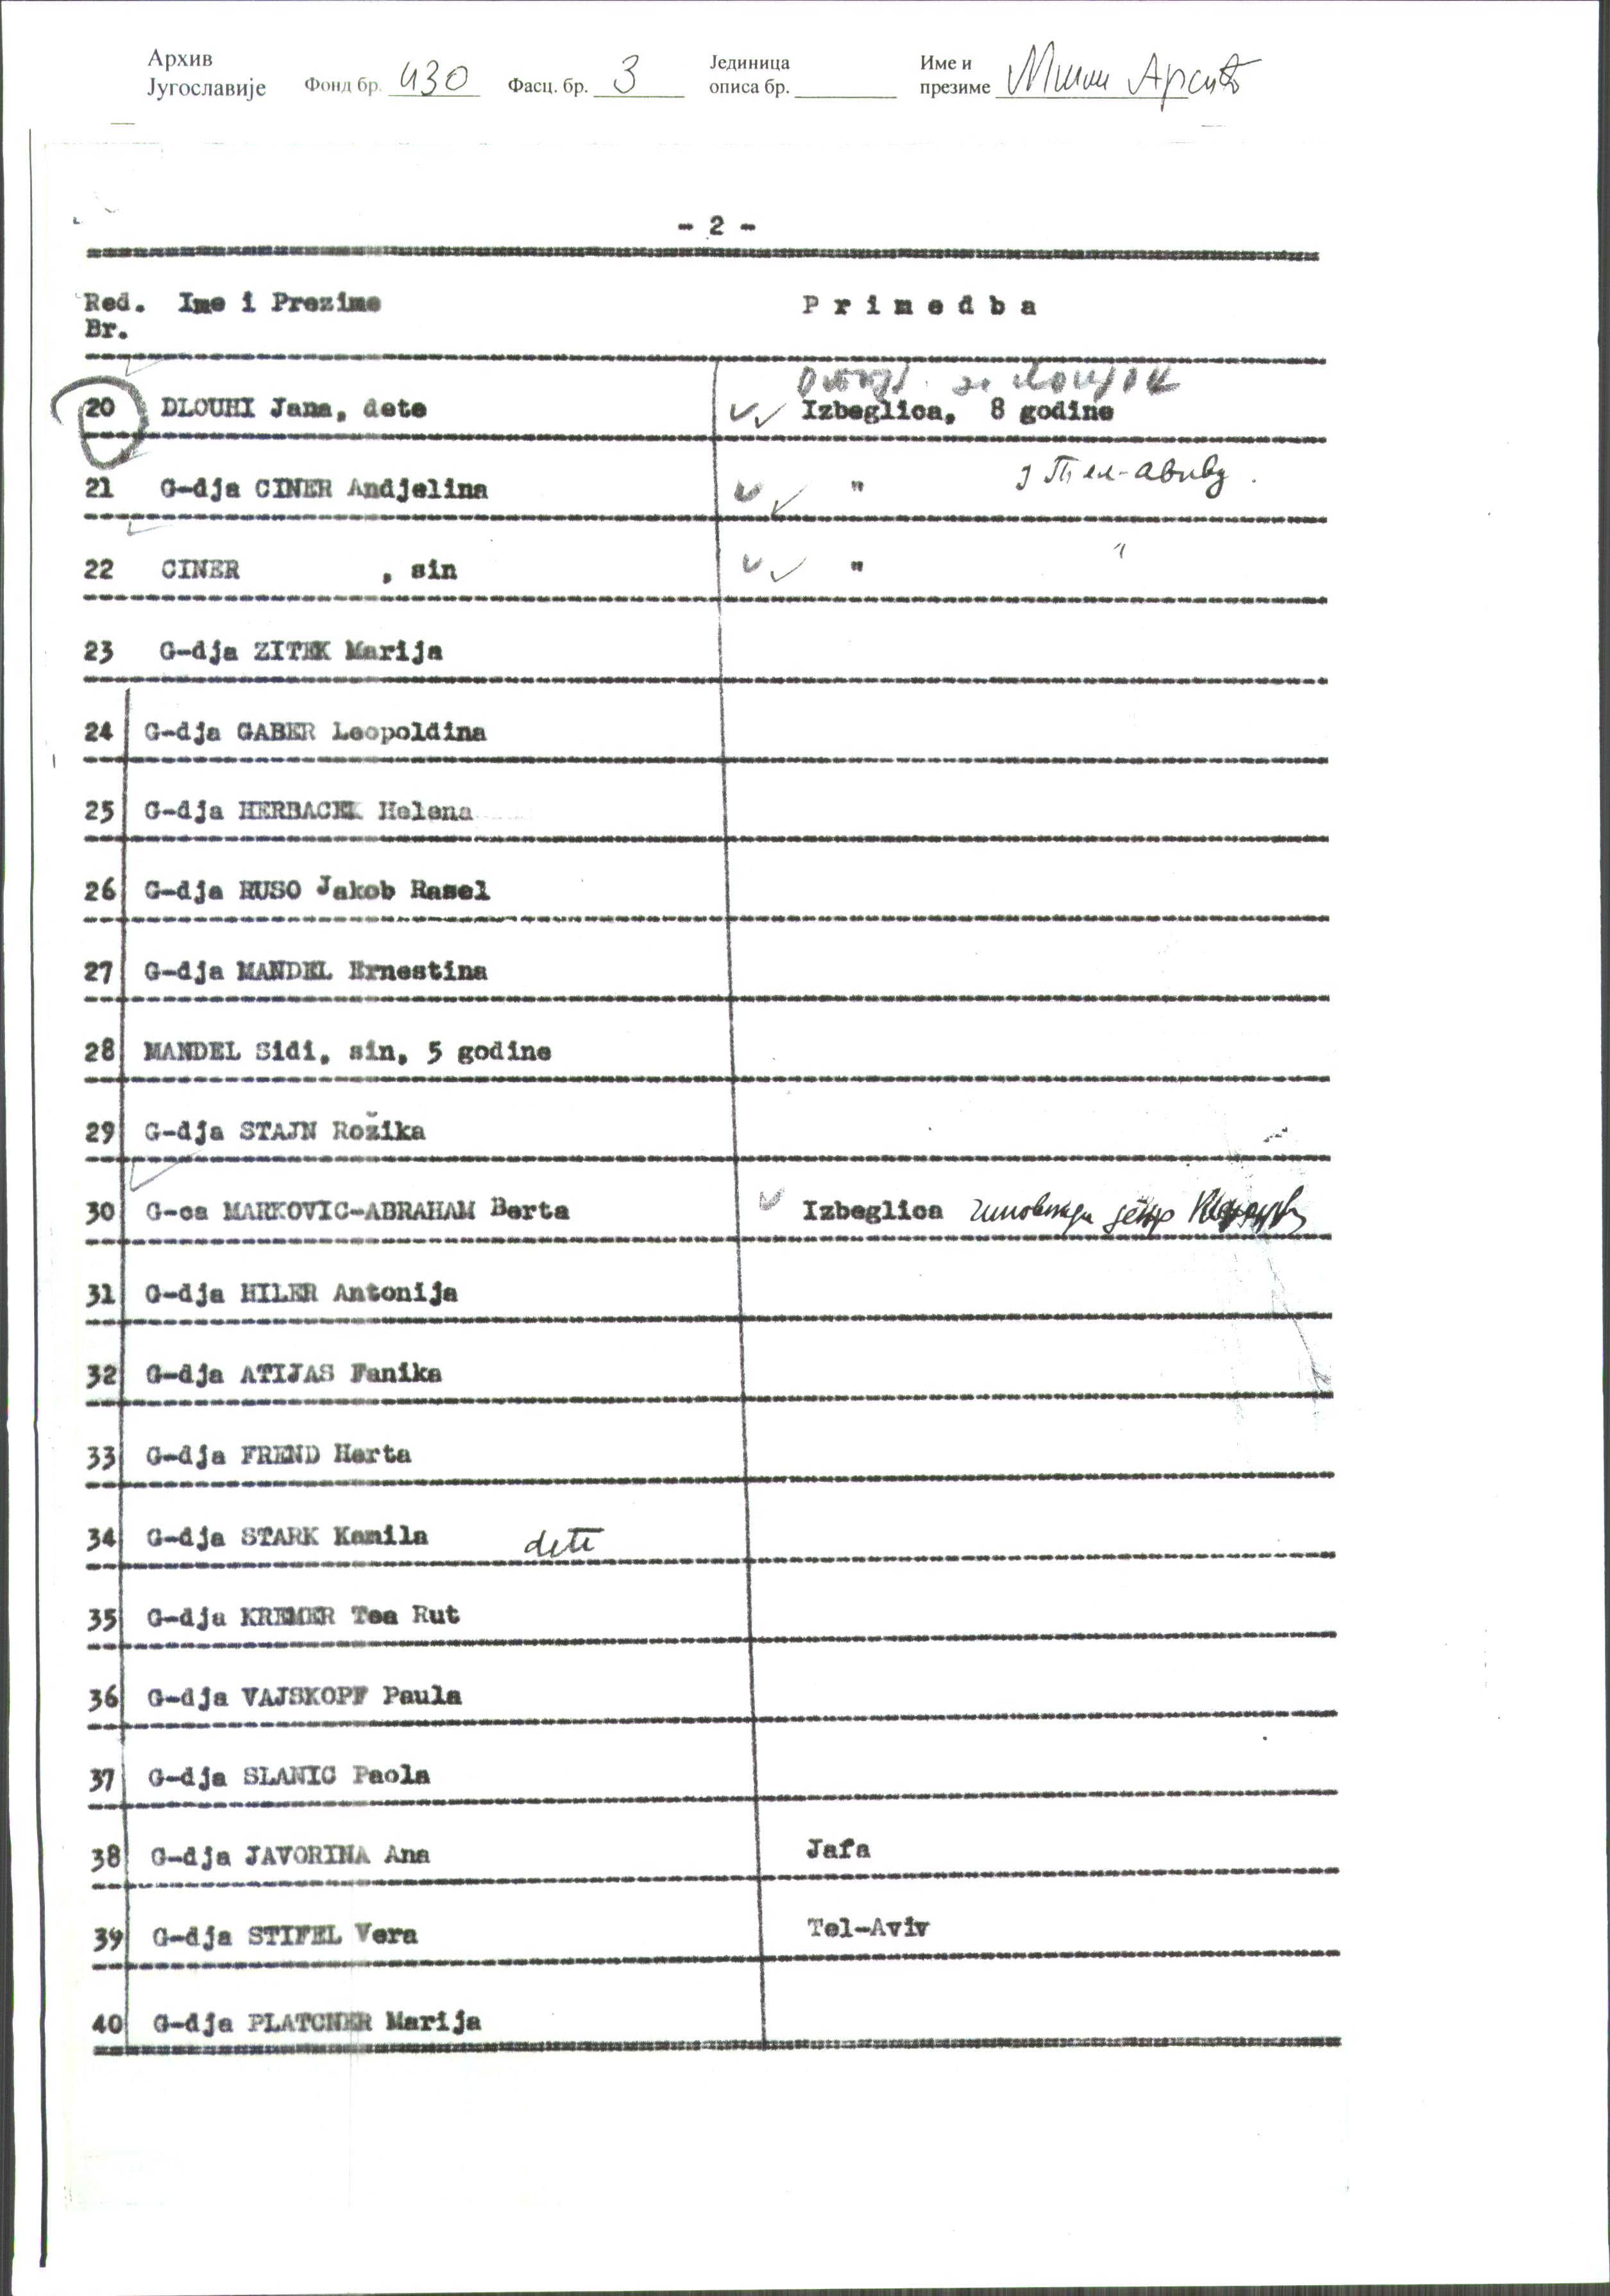 Архив
Југославије Фонд бр. 430 Фасц. бр. 3 Јединица описа бр. Име и презиме Арсић
- 2 -
Red. Br. Ime i Prezime P r i m e d b a
20 DLOUHI Jana, dete Izbeglica, 8 godine
21 G-dja CINER Andjelina " у Тел-Авиву.
22 CINER , sin " "
23 G-dja ZITEK Marija
24 G-dja GABER Leopoldina
25 G-dja HERBACEK Helena
26 G-dja RUSO Jakob Rasel
27 G-dja MANDEL Ernestina
28 MANDEL Sidi, sin, 5 godine
29 G-dja STAJN Rožika
30 G-ca MARKOVIC-ABRAHAM Berta Izbeglica
31 G-dja HILER Antonija
32 G-dja ATIJAS Fanika
33 G-dja FREND Herta
34 G-dja STARK Kamila dete
35 G-dja KREMER Tea Rut
36 G-dja VAJSKOPF Paula
37 G-dja SLANIC Paola
38 G-dja JAVORINA Ana Jafa
39 G-dja STIFEL Vera Tel-Aviv
40 G-dja PLATCNER Marija